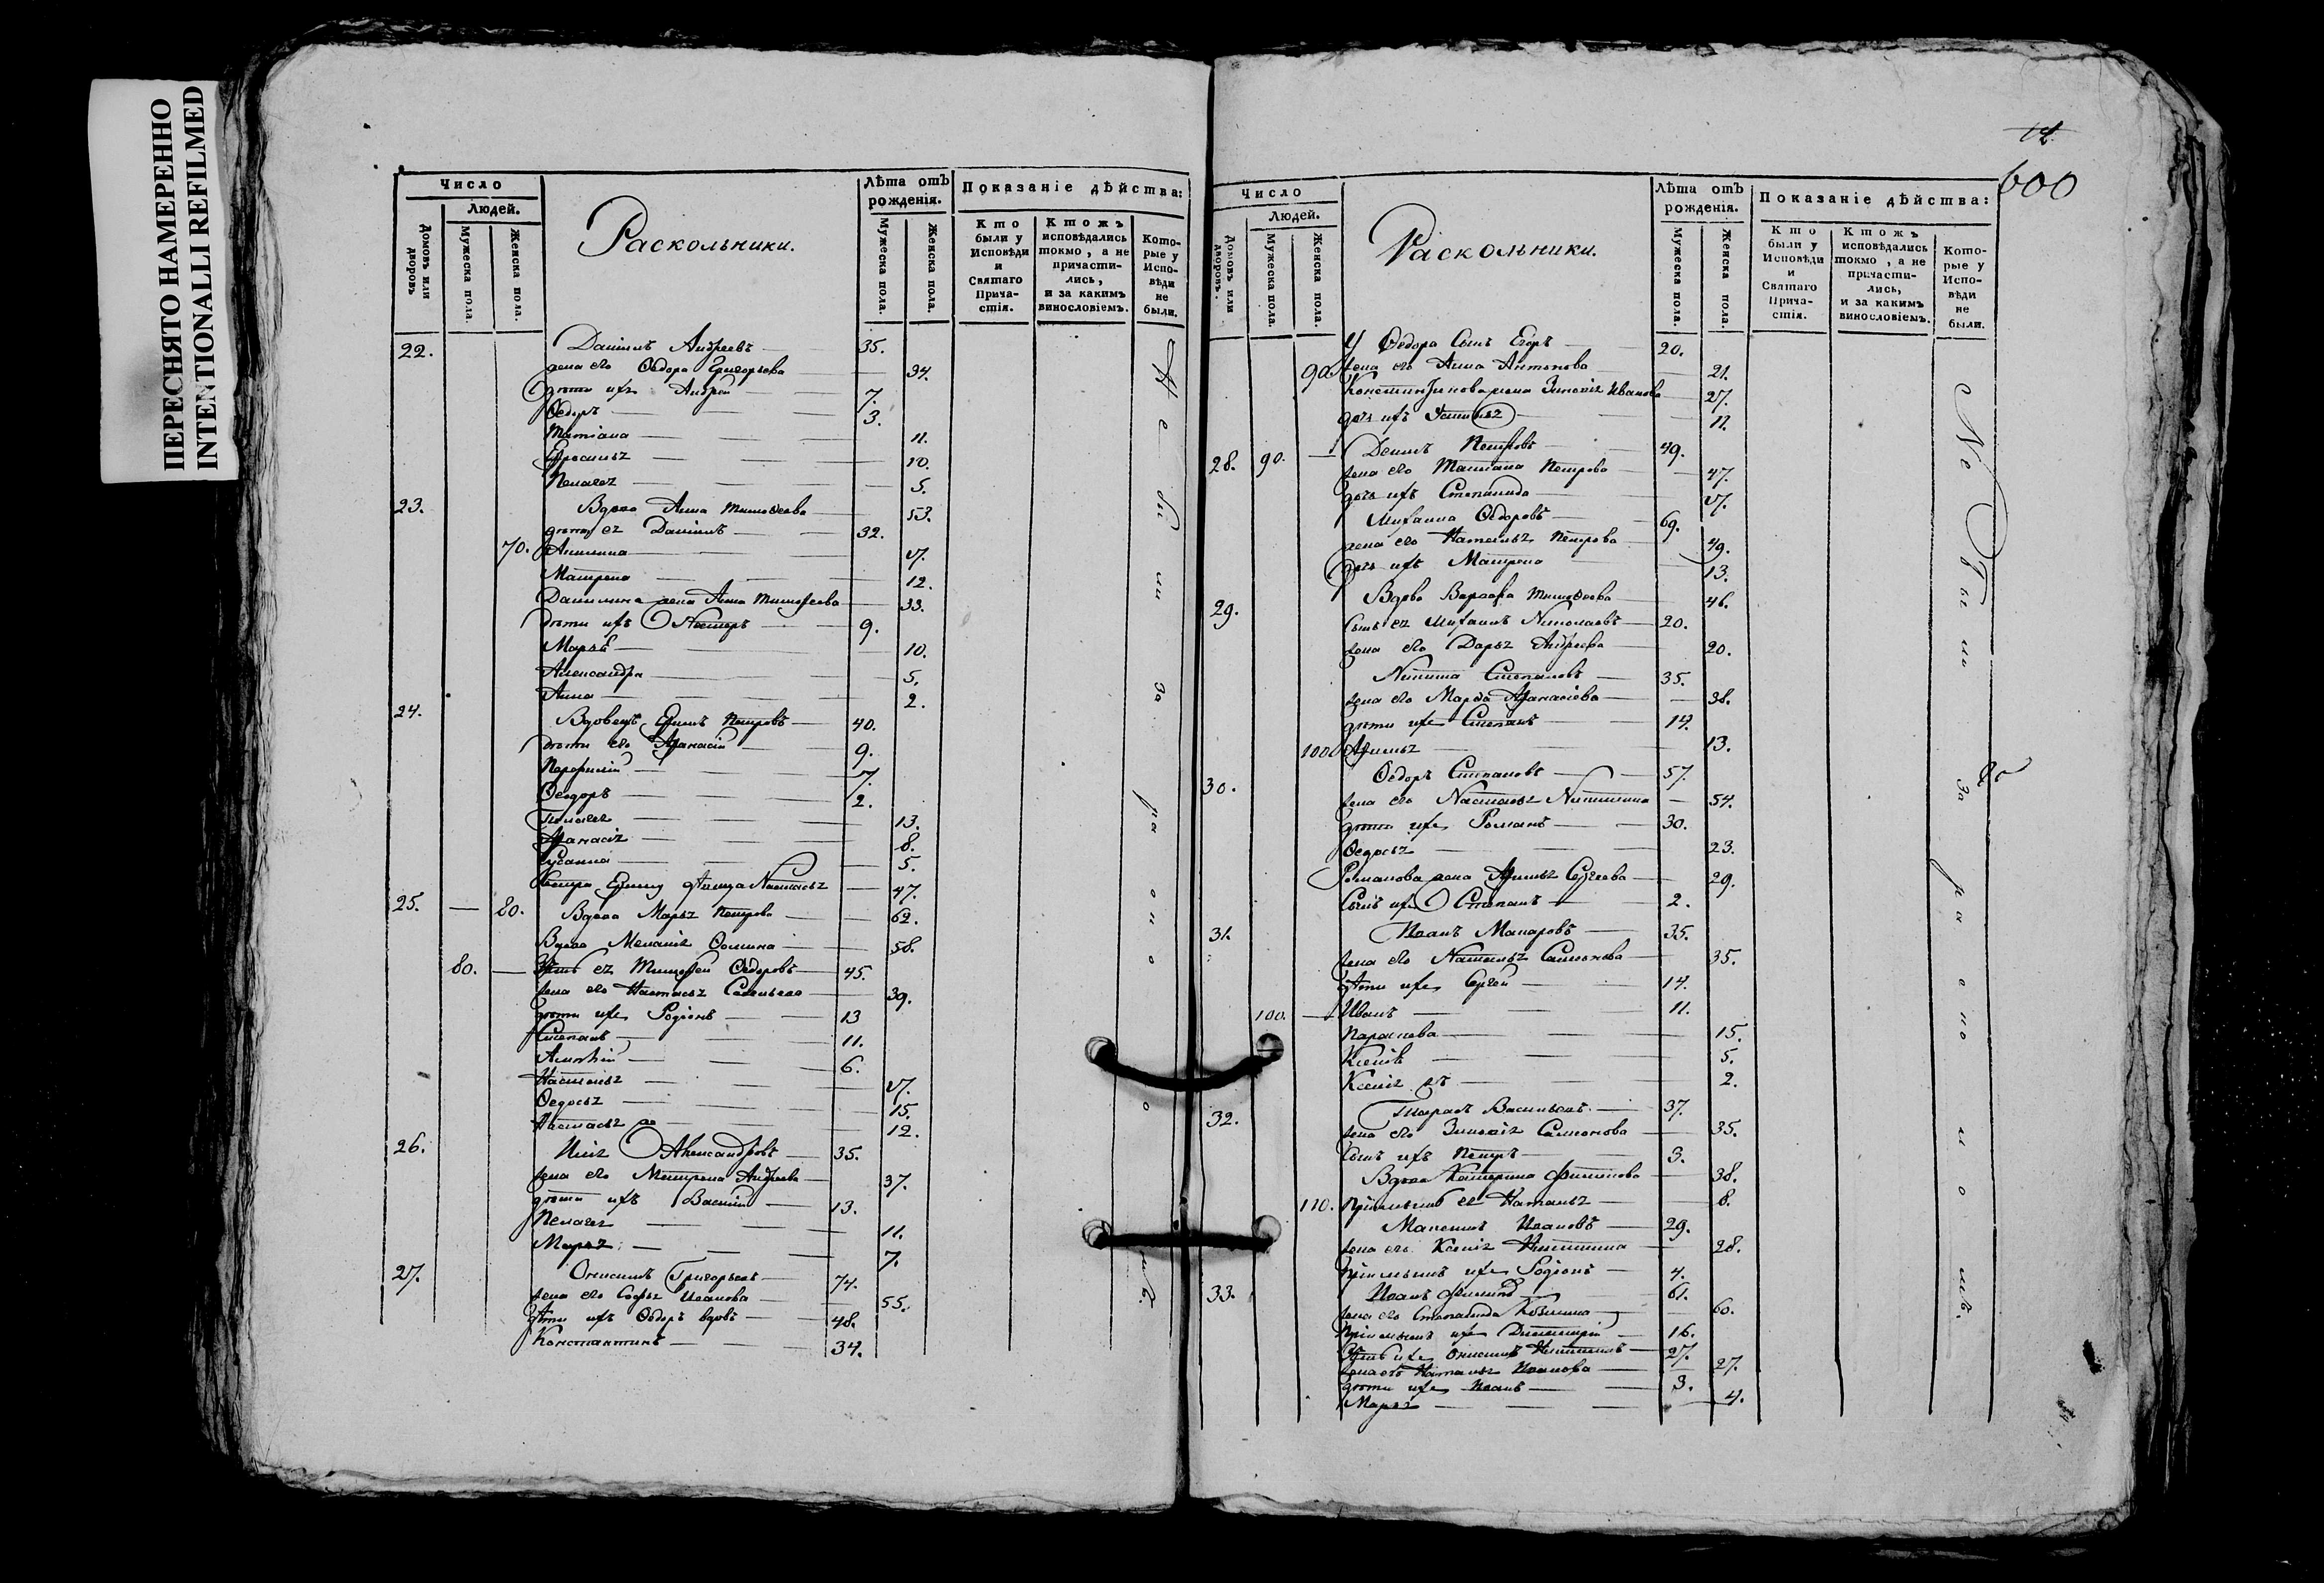 ПЕРЕСНЯТО НАМЕРЕННО
INTENTIONALLI REFILMED
Число
Людей.
Домовъ или дворовъ
Мужеска пола.
Женска пола.
Раскольники.
Лѣта отъ рожденія.
Мужеска пола.
Женска пола.
Показаніе дѣйства:
Кто были у Исповѣди и Святаго Прича-стія.
Ктожъ исповѣдались токмо, а не причасти-лись, и за какимъ винословіемъ.
Кото-рые у Испо-вѣди не были.
22. Данилъ Андреевъ 35.
жена его Ѳедора Григорьева 34.
дѣти ихъ Андрей 7.
Ѳедоръ 3.
Татіана 11.
10.
Пелагея 5.
23. Вдова Анна Тимоѳеева 53.
дѣти ея Данилъ 32.
70. 17.
Матрена 12.
Данилина жена Анна Тимофеева 33.
дѣти ихъ Несторъ 9.
Марья 10.
Александра 5.
Анна 2.
24. Вдовецъ Ефимъ Петровъ 40.
дѣти его Афанасій 9.
7.
Ѳеодоръ 2.
Пелагея 13.
8.
Сусанна 5.
Сестра Ефиму девица Настасья 47.
25. 80. Вдова Марья Петрова 62.
Вдова Меланія Ѳомина 58.
80. Зять ея Тимофей Ѳедоровъ 45.
жена его Настасья Савельева 39.
дѣти ихъ Родіонъ 13
Степанъ 11.
6.
Наталья 17.
Ѳедосья 15.
Настасья 12.
26. Александровъ 35.
жена его Матрена Андреева 37.
дѣти ихъ Василій 13.
Пелагея 11.
Марья 7.
27. Онисимъ Григорьевъ 74.
жена его Софья Иванова 55.
дѣти ихъ Ѳедоръ вдовъ 48.
Константинъ 34.
Не были за раскономъ.
14
600
Число
Людей.
Домовъ или дворовъ.
Мужеска пола.
Женска пола.
Раскольники.
Лѣта отъ рожденія.
Мужеска пола.
Женска пола.
Показаніе дѣйства:
Кто были у Исповѣди и Святаго Прича-стія.
Ктожъ исповѣдались токмо, а не причасти-лись, и за какимъ винословіемъ.
Кото-рые у Испо-вѣди не были.
У Ѳедора Сынъ Егоръ 20.
90. жена его Анна Антонова 21.
Константинова жена Зиновія Иванова 27.
дочь ихъ Устинья 11.
28. 90. Петровъ 49.
жена его Татіана Петрова 47.
дочь ихъ Степанида 17.
Михаила Ѳедоровъ 69.
жена его Наталья Петрова 49.
дочь ихъ Матрена 13.
29. Вдова Варвара Тимоѳеева 46.
Сынъ ея Михаилъ Николаевъ 20.
жена его Дарья Андреева 20.
Никита Степановъ 35.
жена его Марѳа Афанасіева 38.
дѣти ихъ Степанъ 14.
100 13.
30. Ѳедоръ Степановъ 57.
жена его Настасья Никитина 54.
дѣти ихъ Романъ 30.
Ѳедосья 23.
Романова жена Сергеева 29.
Сынъ ихъ Степанъ 2.
31. Иванъ Макаровъ 35.
жена его Наталья Самсонова 35.
дѣти ихъ Сергей 14.
100. Иванъ 11.
Параскева 15.
Ксенія 5.
Ксенія 2.
32. Васильевъ 37.
жена его Зиновія Самсонова 35.
Сынъ ихъ Петръ 3.
Вдова Катерина Филипова 38.
110. Пріемышъ ея Наталья 8.
Иванов 29.
жена его Ксенія Никитина 28.
Пріемышъ ихъ Родіонъ 4.
33. Иванъ 61.
жена его Степанида Козмина 60.
Пріемышъ ихъ Димитрій 16.
Зять ихъ Онисимъ Никитинъ 27.
жена его Наталья Иванова 27.
дѣти ихъ Иванъ 3.
Марья 4.
Не были за